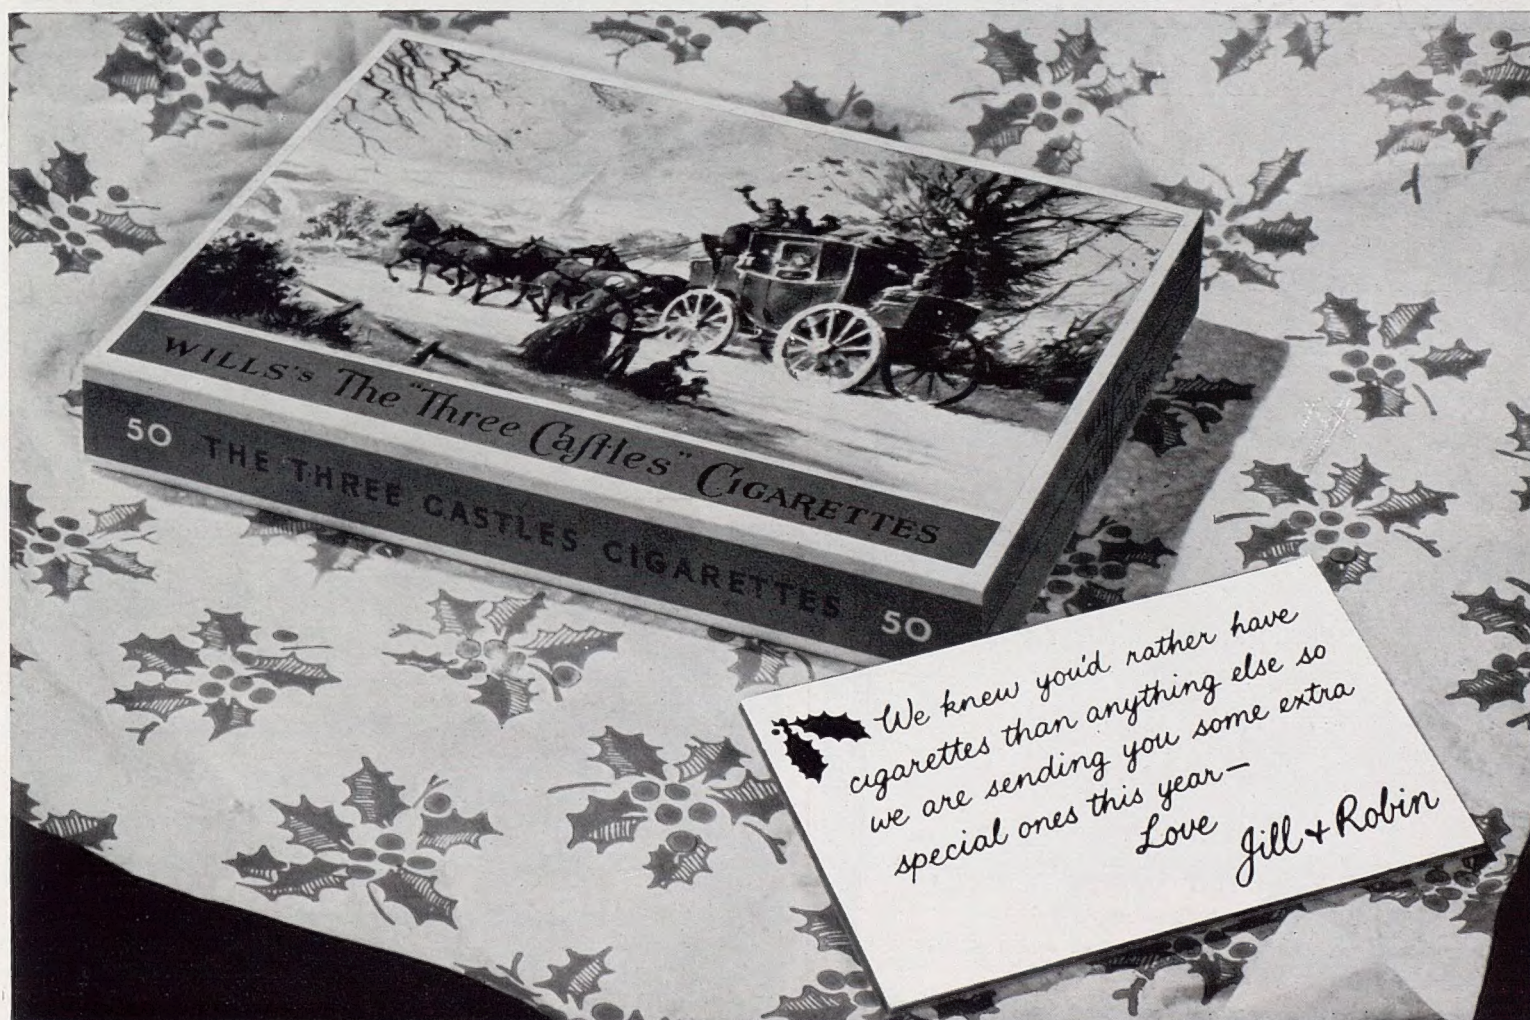 WILLS's The "Three Castles" CIGARETTES
50 THE THREE CASTLES CIGARETTES 50
We knew you'd rather have
cigarettes than anything else so
we are sending you some extra
special ones this year—
Love
Jill + Robin